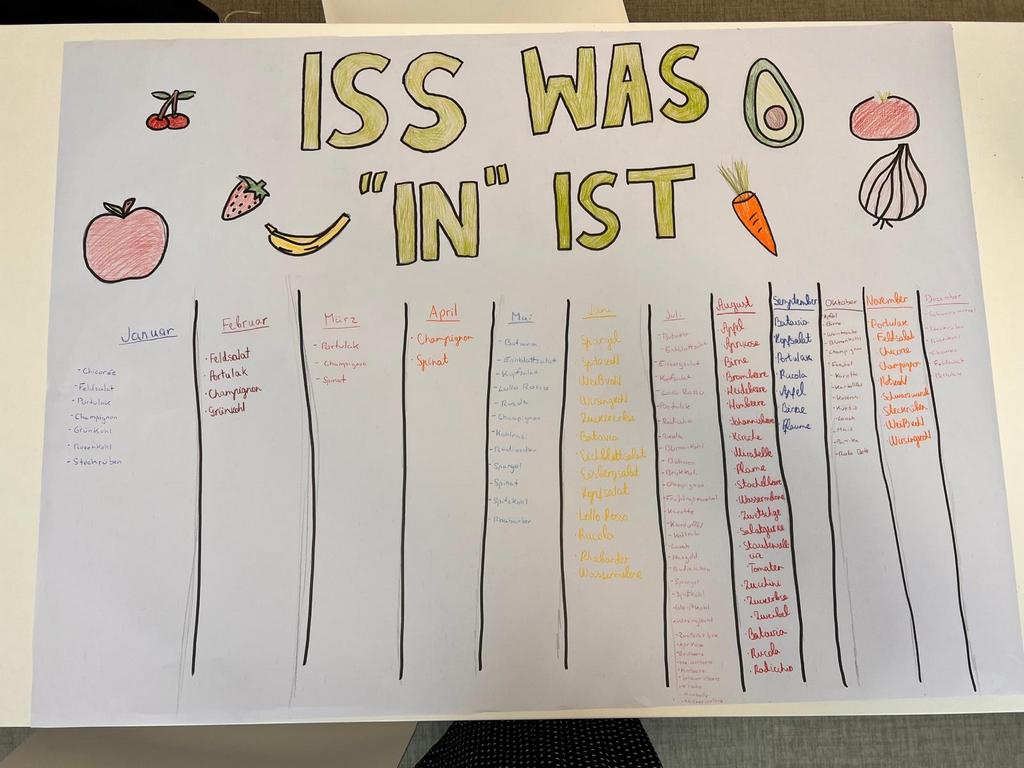 ISS WAS
"IN" IST
Januar
- Chicorée
- Feldsalat
- Portulak
- Champignon
- Grünkohl
- Rosenkohl
- Steckrüben
Februar
· Feldsalat
· Portulak
· Champignon
· Grünkohl
März
- Portulak
- Champignon
- Spinat
April
Champignon
Spinat
Mai
- Batavia
- Eichblattsalat
- Kopfsalat
- Lollo Rosso
- Rucola
- Champignon
- Kohlrabi
- Radieschen
- Spargel
- Spinat
- Spitzkohl
- Rhabarber
Juni
Spargel
Spitzkohl
Weißkohl
Wirsingkohl
Zuckererbse
Batavia
Eichblattsalat
Eisbergsalat
Kopfsalat
Lollo Rosso
Rucola
Rhabarber
Wassermelone
Juli
- Batavia
- Eichblattsalat
- Eisbergsalat
- Kopfsalat
- Lollo Rosso
- Portulak
- Radicchio
- Rucola
- Blumenkohl
- Champignon
- Karotte
- Kartoffel
- Kohlrabi
- Lauch
- Mangold
- Radieschen
- Spargel
- Spitzkohl
- Weißkohl
- Wirsingkohl
- Aprikose
- Kirsche
- Mirabelle
August
Apfel
Aprikose
Birne
Brombeere
Heidelbeere
Himbeere
Johannisbeere
Kirsche
Mirabelle
Pflaume
Stachelbeere
Wassermelone
Zwetschge
Salatgurke
Staudensellerie
Tomaten
Zucchini
Zuckererbse
Zwiebel
Batavia
Rucola
Radicchio
Semptember
Batavia
Kopfsalat
Portulak
Rucola
Apfel
Birne
Pflaume
Oktober
Apfel
- Birne
- Blumenkohl
- Champignon
- Fenchel
- Karotte
- Kartoffel
- Kohlrabi
- Kürbis
- Lauch
- Mais
- Rote Bete
November
Portulak
Feldsalat
Chicorée
Champignon
Rotkohl
Schwarzwurzel
Steckrüben
Weißkohl
Wirsingkohl
Dezember
- Schwarzwurzel
- Steckrüben
- Rosenkohl
- Chicorée
- Feldsalat
- Portulak